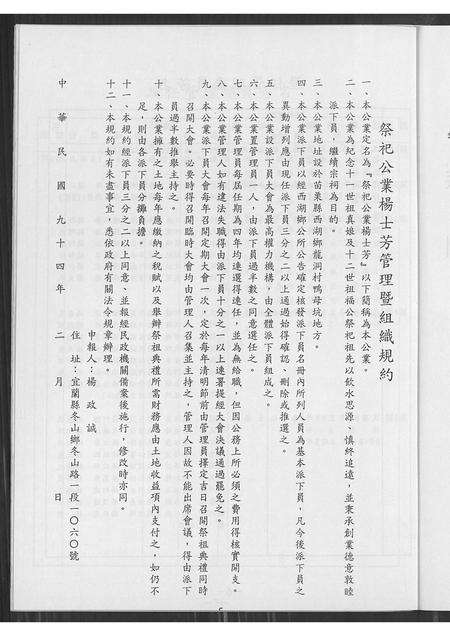 祭祀公業楊士芳管理暨組織規約
一、本公業定名為『祭祀公業楊士芳』以下簡稱為本公業。
二、本公業為紀念十一世祖真娘及十二世祖福公祭祀祖先以飲水思源、慎終追遠，並秉承創業德意敦睦
派下員，繼續宗祠為目的。
三、本公業地址設於苗栗縣西湖鄉龍洞村鴨母坑地方。
四、本公業派下員以經西湖鄉公所公告確定核發派下員名冊內所列人員為基本派下員，凡今後派下員之
異動增列應由現任派下員三分之二以上通過始得確認、刪除或推選之。
五、本公業設派下員大會為最高權力機構，由全體派下員組成之。
六、本公業置管理員一人，由派下員過半數之同意選任之。
七、本公業管理員每屆任期為四年均連選得連任，並為無給職，但因公務上所必須之費用得核實開支。
八、本公業管理人如有違法失職得由派下員十分之一以上連署提經大會決議通過罷免之。
九、本公業派下員大會每年召開定期大會一次，定於每年清明節前由管理員擇定吉日召開祭祖典禮同時
召開大會。必要時得召開臨時大會均由管理人召集並主持之，管理人因故不能出席會議，得由派下
員過半數推舉主持之。
十、本公業擁有之土地每年應繳納之稅賦以及舉辦祭祖典禮所需財務應由土地收益項內支付之，如仍不
足，則由各派下員分攤負擔。
十一、本規約經派下員三分之二以上同意、並報經民政機關備案後施行，修改時亦同。
十二、本規約如有未盡事宜，悉依政府有關法令規章辦理。
申報人：楊政誠
住址：宜蘭縣冬山鄉冬山路一段一〇六〇號
中華民國九十四年二月日